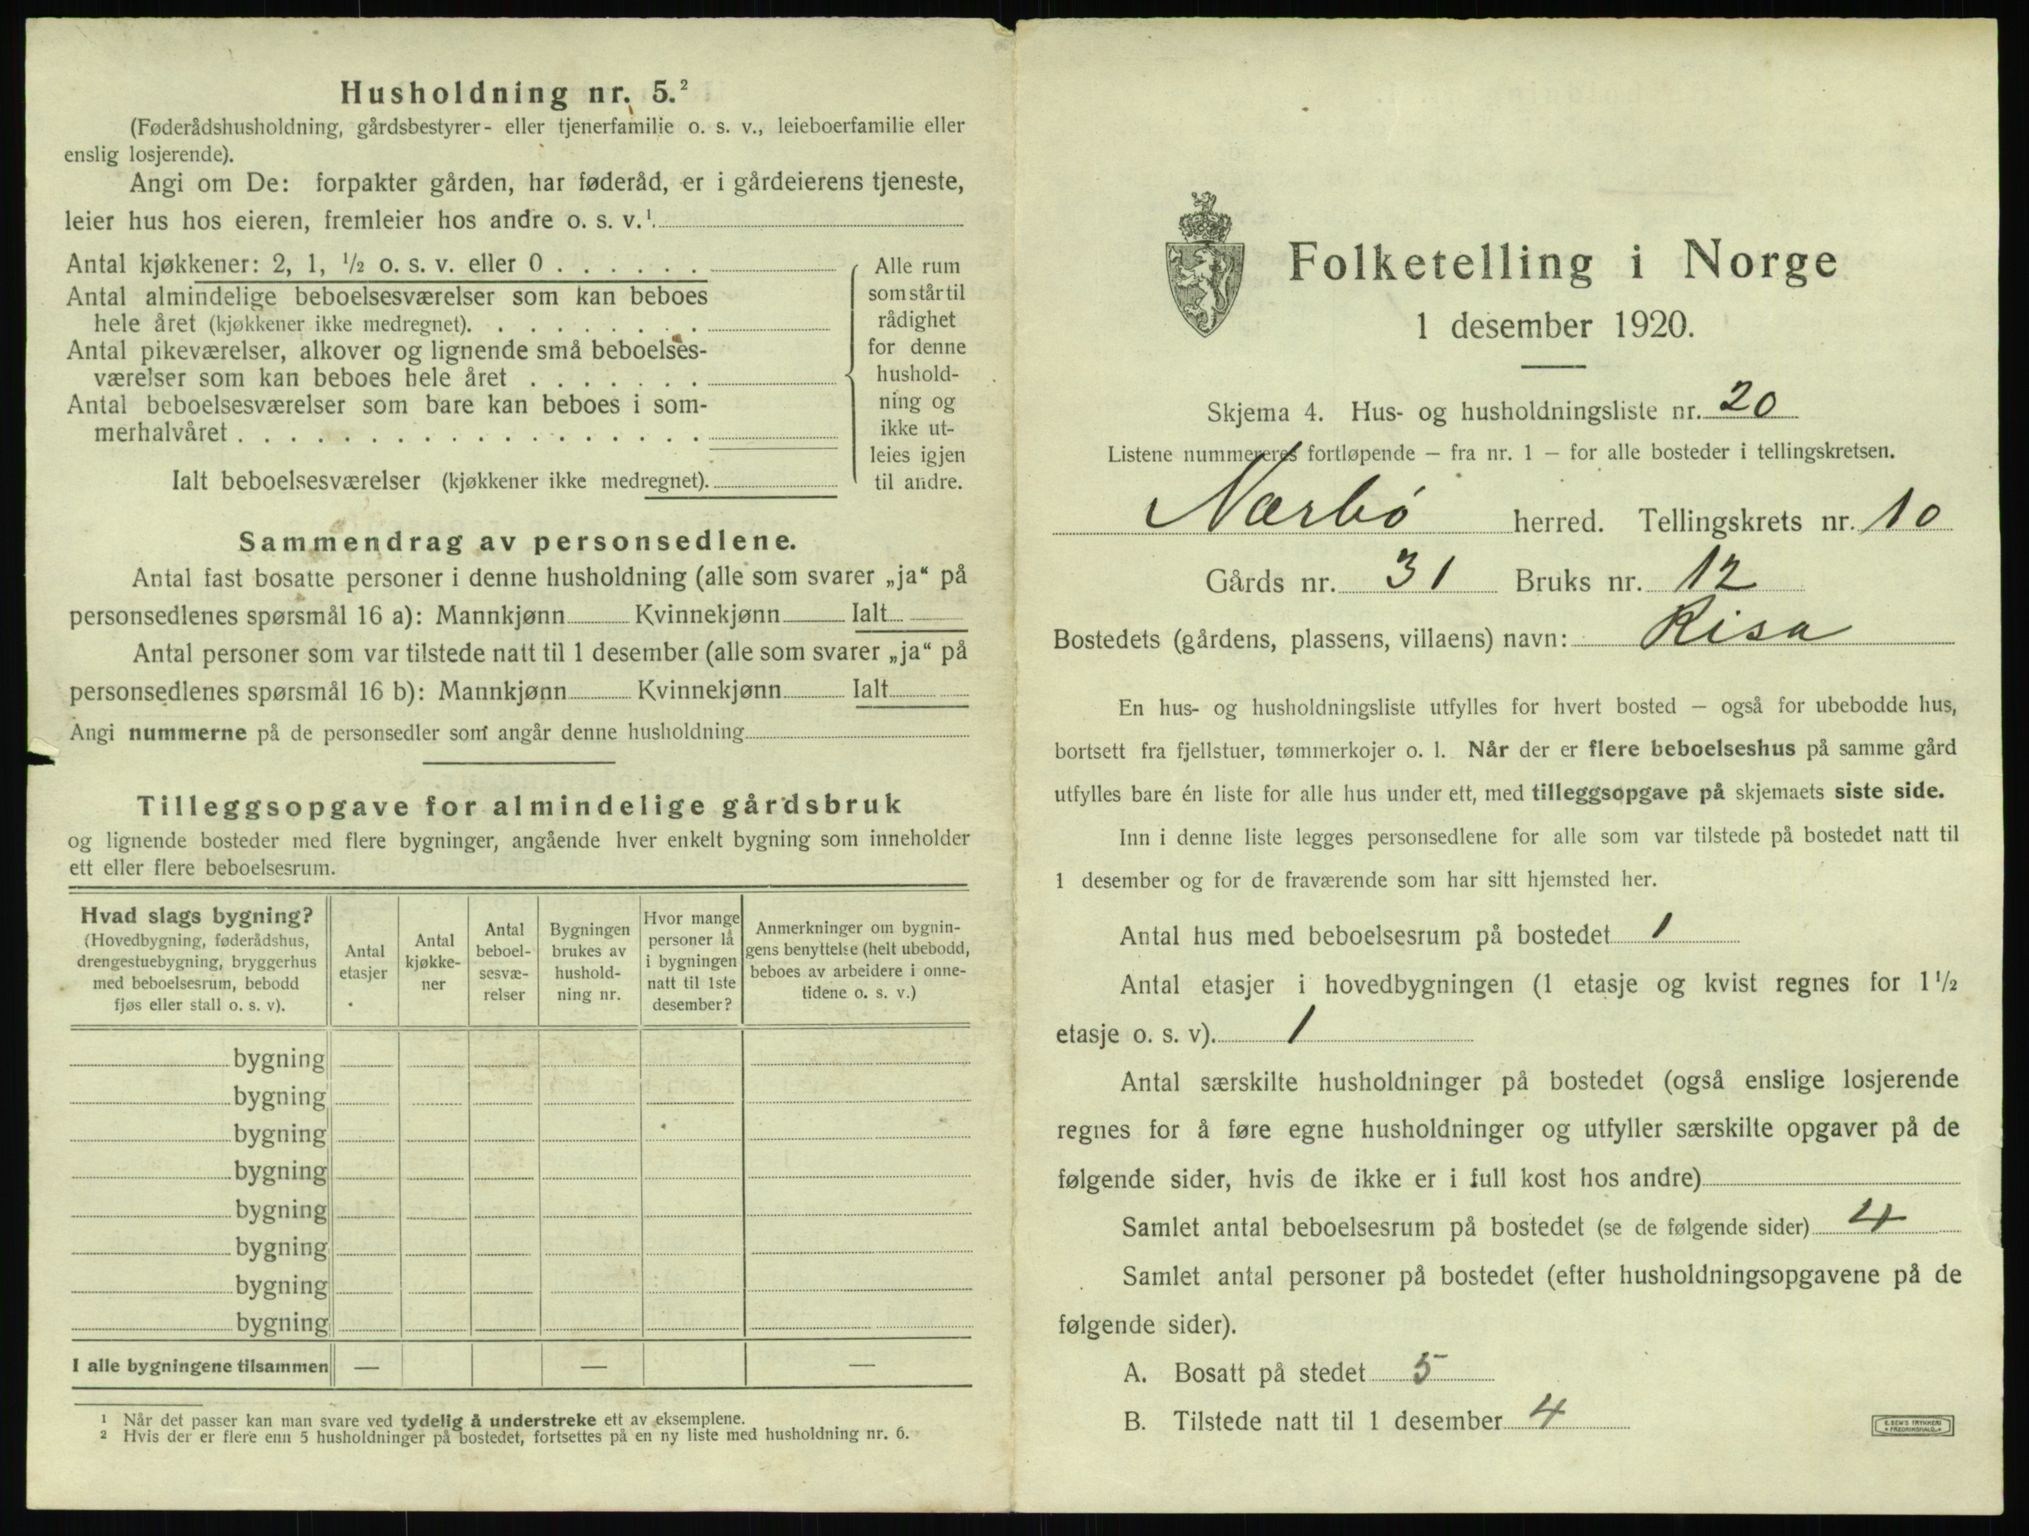 Husholdning nr. 5.²
(Føderådshusholdning, gårdsbestyrer- eller tjenerfamilie o. s. v., leieboerfamilie eller
enslig losjerende).
Angi om De: forpakter gården, har føderåd, er i gårdeierens tjeneste,
leier hus hos eieren, fremleier hos andre o. s. v.¹
Antal kjøkkener: 2, 1, ½ o. s. v. eller 0 . . . . . .
Antal almindelige beboelsesværelser som kan beboes
hele året (kjøkkener ikke medregnet). . . . . . . . .
Antal pikeværelser, alkover og lignende små beboelses-
værelser som kan beboes hele året . . . . . . .
Antal beboelsesværelser som bare kan beboes i som-
merhalvåret . . . . . . . . . . . . . . . . . .
Ialt beboelsesværelser (kjøkkener ikke medregnet).
Alle rum
som står til
rådighet
for denne
hushold-
ning og
ikke ut-
leies igjen
til andre.
Sammendrag av personsedlene.
Antal fast bosatte personer i denne husholdning (alle som svarer „ja“ på
personsedlenes spørsmål 16 a): Mannkjønn Kvinnekjønn Ialt
Antal personer som var tilstede natt til 1 desember (alle som svarer „ja“ på
personsedlenes spørsmål 16 b): Mannkjønn Kvinnekjønn Ialt
Angi nummerne på de personsedler som angår denne husholdning
Tilleggsopgave for almindelige gårdsbruk
og lignende bosteder med flere bygninger, angående hver enkelt bygning som inneholder
ett eller flere beboelsesrum.
Hvad slags bygning?
(Hovedbygning, føderådshus,
drengestuebygning, bryggerhus
med beboelsesrum, bebodd
fjøs eller stall o. s. v).
Antal
etasjer
Antal
kjøkke-
ner
Antal
beboel-
sesvæ-
relser
Bygningen
brukes av
hushold-
ning nr.
Hvor mange
personer lå
i bygningen
natt til 1ste
desember?
Anmerkninger om bygnin-
gens benyttelse (helt ubebodd,
beboes av arbeidere i onne-
tidene o. s. v.)
bygning
bygning
bygning
bygning
bygning
bygning
bygning
bygning
I alle bygningene tilsammen — — —
¹ Når det passer kan man svare ved tydelig å understreke ett av eksemplene.
² Hvis der er flere enn 5 husholdninger på bostedet, fortsettes på en ny liste med husholdning nr. 6.
Folketelling i Norge
1 desember 1920.
Skjema 4. Hus- og husholdningsliste nr. 20
Listene nummereres fortløpende – fra nr. 1 – for alle bosteder i tellingskretsen.
Nærbø herred. Tellingskrets nr. 10
Gårds nr. 31 Bruks nr. 12
Bostedets (gårdens, plassens, villaens) navn: Risa
En hus- og husholdningsliste utfylles for hvert bosted – også for ubebodde hus,
bortsett fra fjellstuer, tømmerkojer o. l. Når der er flere beboelseshus på samme gård
utfylles bare én liste for alle hus under ett, med tilleggsopgave på skjemaets siste side.
Inn i denne liste legges personsedlene for alle som var tilstede på bostedet natt til
1 desember og for de fraværende som har sitt hjemsted her.
Antal hus med beboelsesrum på bostedet 1
Antal etasjer i hovedbygningen (1 etasje og kvist regnes for 1½
etasje o. s. v). 1
Antal særskilte husholdninger på bostedet (også enslige losjerende
regnes for å føre egne husholdninger og utfyller særskilte opgaver på de
følgende sider, hvis de ikke er i full kost hos andre)
Samlet antal beboelsesrum på bostedet (se de følgende sider) 4
Samlet antal personer på bostedet (efter husholdningsopgavene på de
følgende sider).
A. Bosatt på stedet 5
B. Tilstede natt til 1 desember 4
E. SEM'S TRYKKERI
FREDRIKSHALD